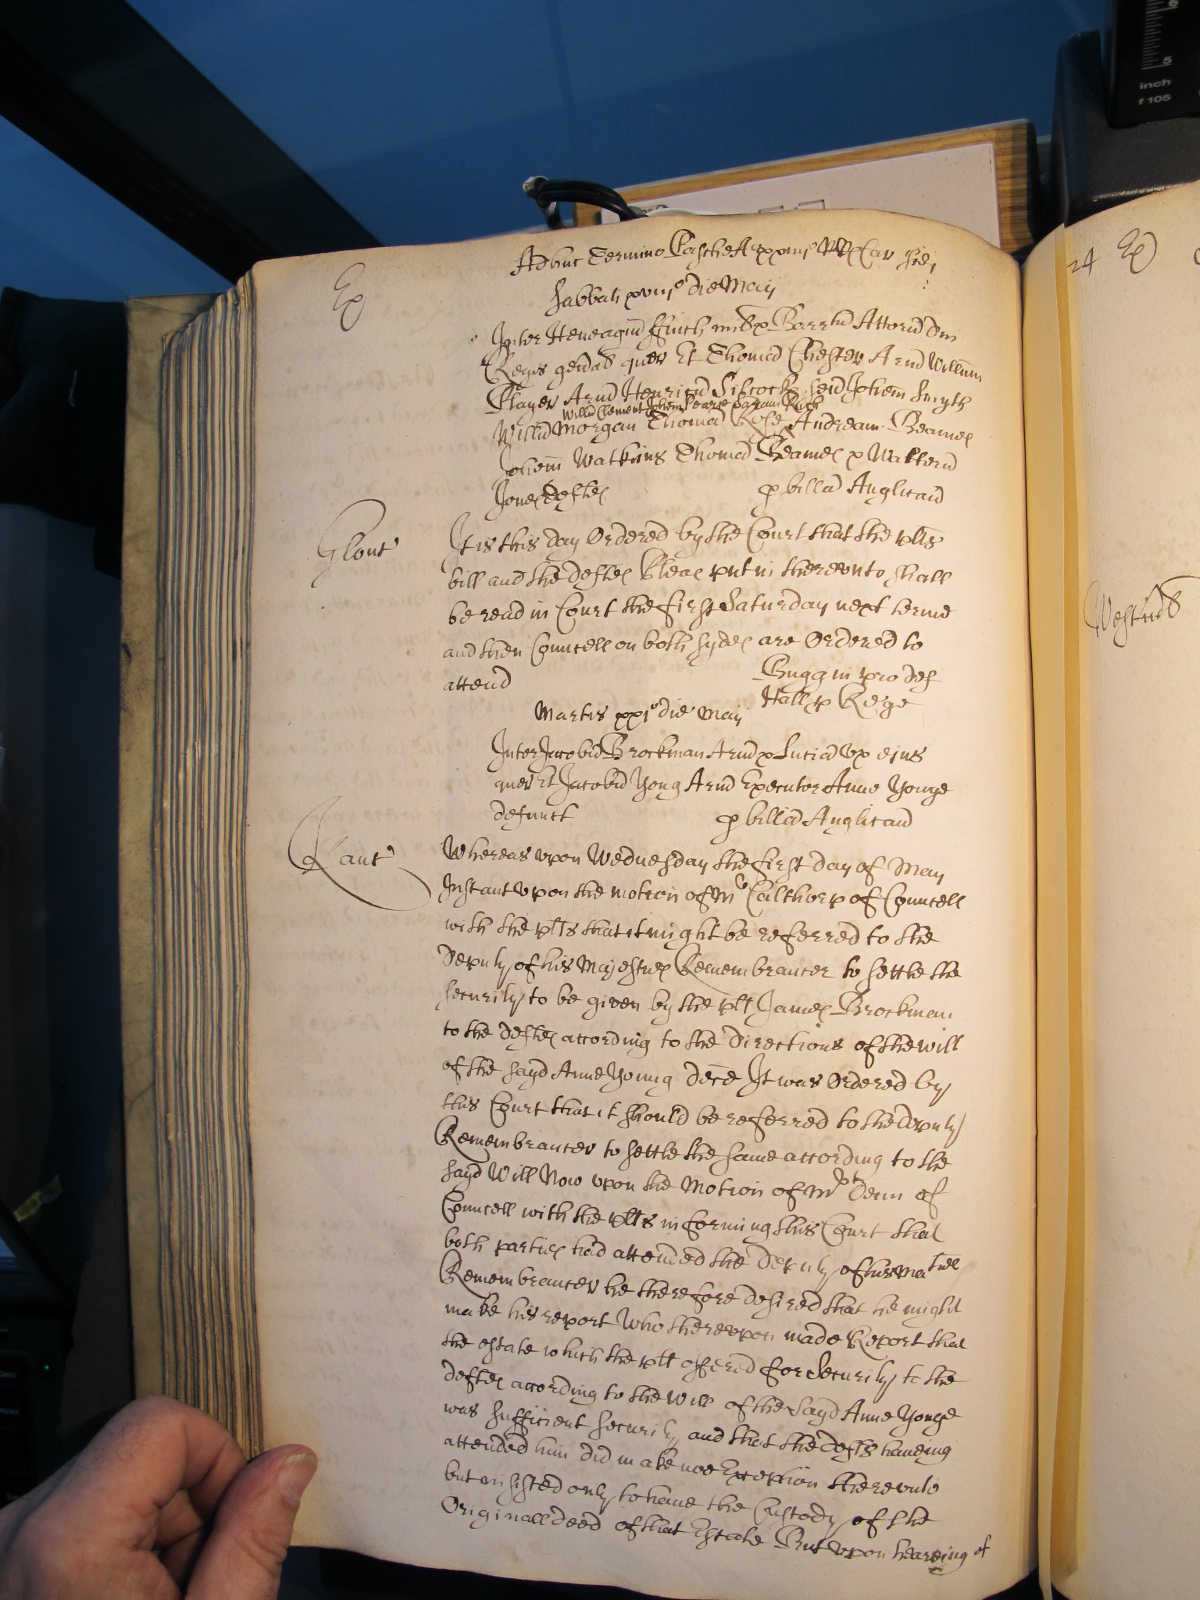 Adhuc Termino Pasche Ao xxiijo RRs Car Sidi
Ex
Sabbati xviijo die Maij
Inter Heneagiu ffinch milit & Barrtu Attornu Dni
Regis gen'al quer Et Thomam Chester Arm Willum
Player Arm Henricu Silcocks Johem Smyth
Willm Clement Johem Pearse
Willm Morgan Thomam Rose Andream Beames
Johem Watkins Thomam Beames & Walteru
Jones Deftes p billam Anglicanam
Glouc
It is this day Ordered by the Court that the plts
bill and the deftes Pleas putt in thereunto shall
be read in Court the first Saturday next terme
and then Councell on both sydes are Ordered to
attend
Buggin pro def
Hall p Rege
Martis xxjo die Maij
Inter Jacobu Brockman Arm & Luciam ux ejus
quer Et Jacobu Yong Arm Executor Anne Yonge
defunct p billam Anglicanam
Kanc
Whereas upon Wednesday the first day of May
Instant upon the motion of Mr Calthorp of Councell
with the plts that it might be referred to the
Deputy of his Majesties Remembrancer to settle the
security to be given by the plt James Brockman
to the deftes according to the directions of the will
of the sayd Anne Young deced It was Ordered by
this Court that it should be referred to the Deputy
Remembrancer to settle the same according to the
sayd Will Now upon the Motion of Mr Denn of
Councell with the plts informing this Court that
both parties had attended the Deputy of his Maties
Remembrancer he therefore desired that he might
make his report Who thereupon made Report that
the estate which the plt offered for Security to the
deftes according to the Will of the Sayd Anne Yonge
was sufficient security and that the defts haveing
attended him did make noe Exception thereunto
but insisted only to have the Custody of the
Originall deed of that Estate But upon heareing of
24 Ex
Westmd
inch
f 105
5